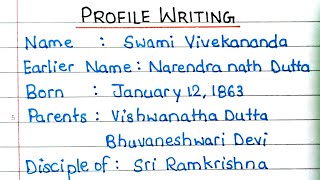 PROFILE WRITING
Name : Swami Vivekananda
Earlier Name : Narendra nath Dutta
Born : January 12, 1863
Parents : Vishwanatha Dutta
Bhuvaneshwari Devi
Disciple of : Sri Ramkrishna